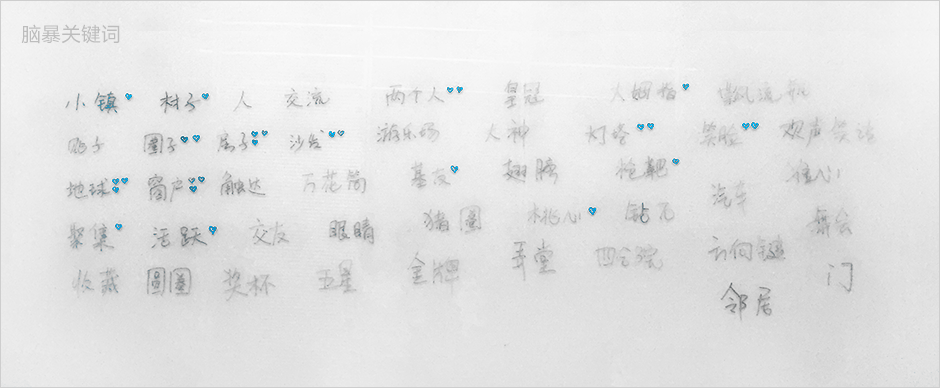 脑暴关键词
小镇 村子 人 交流 两个人 皇冠 大姆指
圈子 房子 沙发 游乐场 火神 灯塔 笑脸 欢声笑语
地球 窗户 触达 万花筒 基友 翅膀 枪靶 汽车
聚集 活跃 交友 眼睛 猪圈 桃心 钻石 舞会
收藏 圆圈 奖杯 五星 金牌 弄堂 方向键 门
邻居